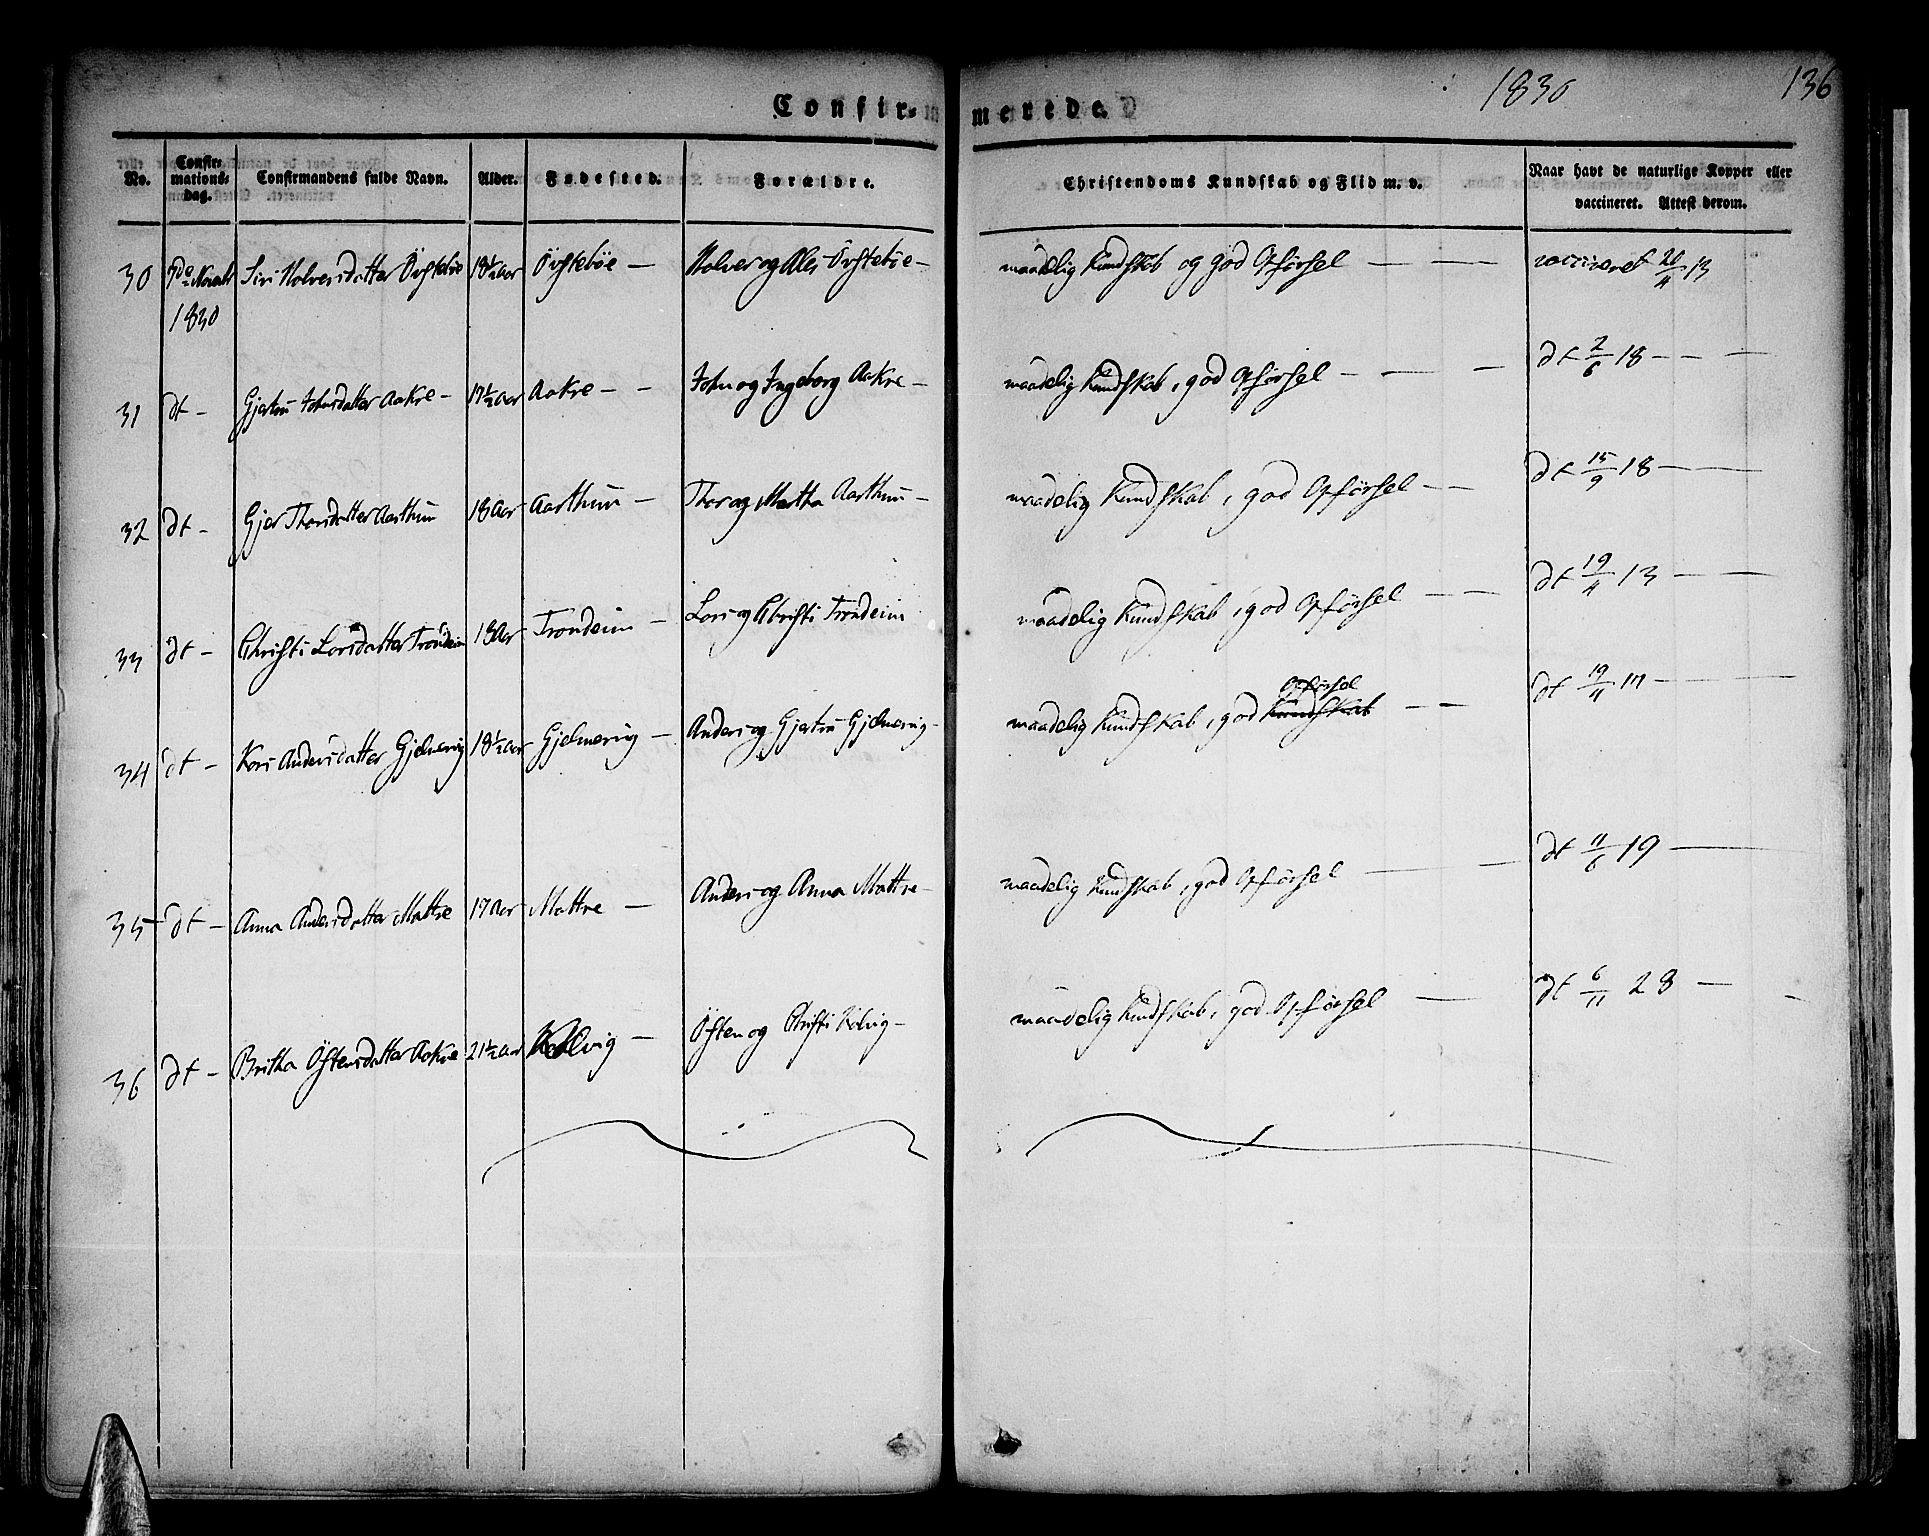 1830 136
Confir- merede.
No. Confirmations-Dag. Confirmandens fulde Navn. Alder. Fødested. Forældre. Christendoms Kundskab og Flid m. v. Naar havt de naturlige Kopper eller vaccineret. Attest derom.
30 7de Novbr 1830 Siri Holversdatter Øvstebøe 18½ Aar Øvstebøe — Holver og Ales Øvstebøe — maadelig Kundskab og god Opførsel — — vaccineret 20/4 13
31 dt — Gjertru Johnsdatter Aakre — 17½ Aar Aakre — — John og Ingeborg Aakre — maadelig Kundskab, god Opførsel — — — dt 2/6 18 — — —
32 dt — Gjør Thorsdatter Aarthun 18 Aar Aarthun — Thor og Martha Aarthun — maadelig Kundskab, god Opførsel — — dt 15/9 18 — —
33 dt — Christi Larsdatter Trondeim 18 Aar Trondeim — Lars og Christi Trondeim maadelig Kundskab, god Opførsel — — dt 19/4 13 — —
34 dt — Kari Andersdatter Gjelmervig 18½ Aar Gjelmervig — Anders og Gjertru Gjelmervig — maadelig Kundskab, god Kundskab Opførsel — — dt 19/11 17 — —
35 dt — Anna Andersdatter Mattre 17 Aar Mattre — Anders og Anna Mattre — maadelig Kundskab, god Opførsel — — dt 11/6 19 —
36 dt — Britha Østensdatter Aakre 21½ Aar Kolvig — Østen og Christi Kolvig — maadelig Kundskab, god Opførsel — — dt 6/11 28 — —